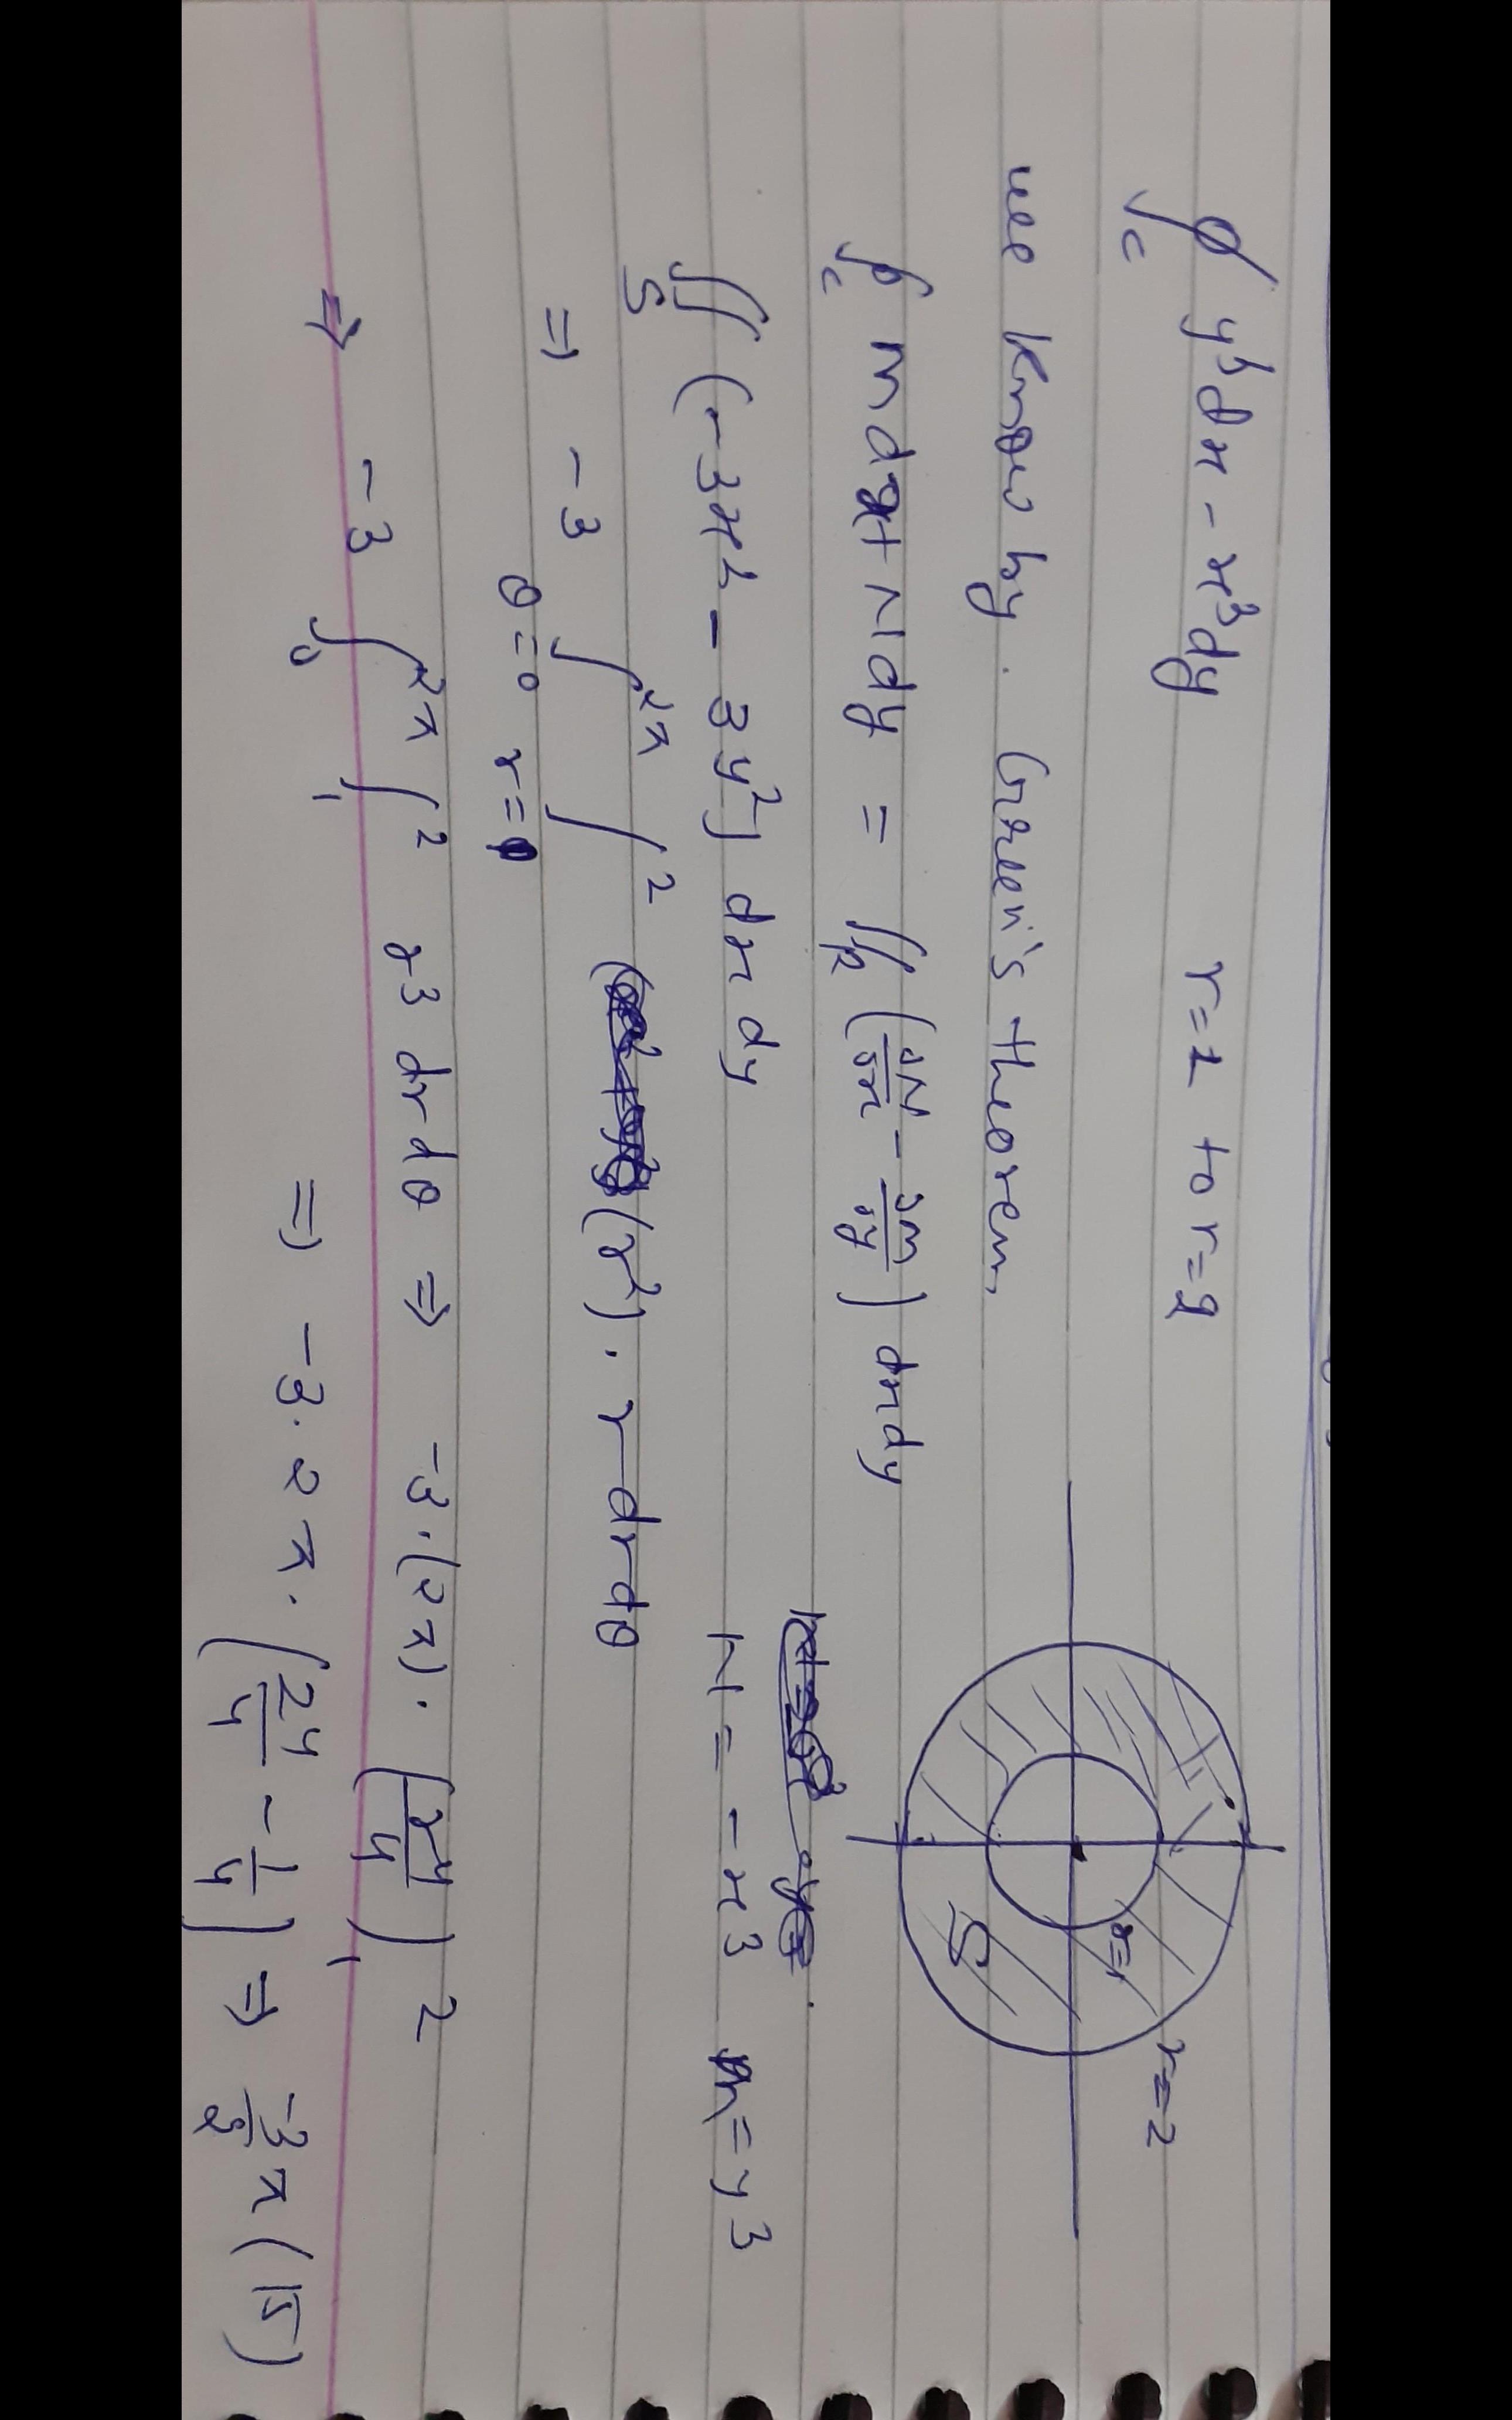 ∮_C y³dx - x³dy r=1 to r=2
we know by. Green's theorem,
∮_C m dx + N dy = ∬_R (∂N/∂x - ∂m/∂y) dxdy
r=1
r=2
S
∬_S (-3x² - 3y²) dx dy N = -x³ m = y³
⇒ -3 ∫_{θ=0}^{2π} ∫_{r=1}^{2} (r²). r dr dθ
⇒ -3 ∫_0^{2π} ∫_1^2 r³ dr dθ ⇒ -3.(2π). (r⁴/4)_1^2
⇒ -3. 2π. (2⁴/4 - 1/4) ⇒ -3/2 π (15)